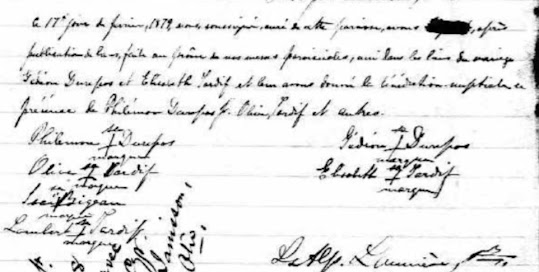 Ce 17e jour de février, 1879 nous, soussigné, curé de cette paroisse, avons après
publication de bans, faite au prône de nos messes paroissiales, uni dans les liens du mariage
Gédéon Durepos et Elisabeth Tardif et leur avons donné la bénédiction nuptiale en
présence de Philémon Durepos Jr. Olive Tardif et autres.
Philemon sa + marque Durepos
Gédéon sa + marque Durepos
Olive sa + marque Tardif
Elisabeth sa + marque Tardif
sa + marque
Lambert sa + marque Tardif
Ls Alp.